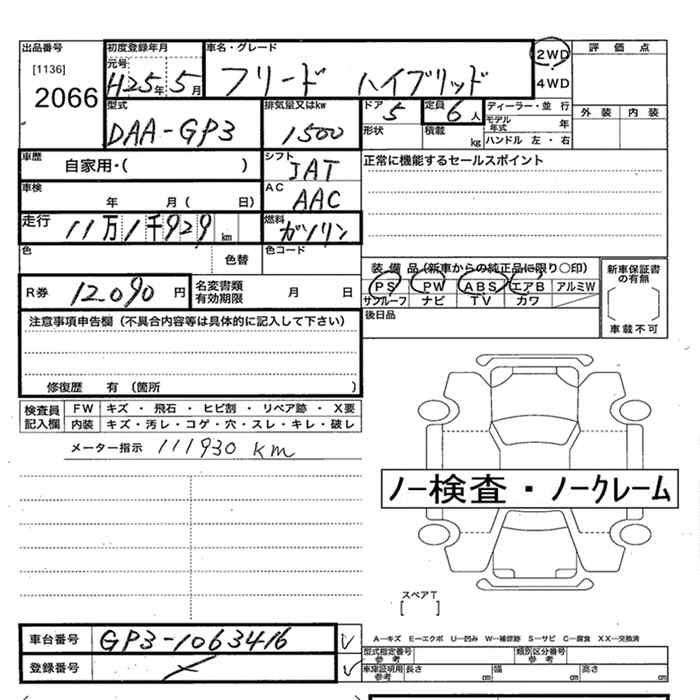 出品番号 初度登録年月 車名・グレード 2WD 評価点
[1136] 元号 H25年5月 フリード ハイブリッド 4WD
2066
型式 排気量又はkw ドア 5 定員 6人 ディーラー・並行 外装 内装
DAA-GP3 1500 形状 積載 kg モデル年式 年
ハンドル 左・右
車歴 自家用・( ) シフト JAT 正常に機能するセールスポイント
車検 年 月 ( 日) AC AAC
走行 11万1千929km 燃料 ガソリン
色 色替 色コード
装備品(新車からの純正品に限り○印) 新車保証書の有無
PS PW ABS エアB アルミW
サンルーフ ナビ TV カワ
R券 12,090円 名変書類有効期限 月 日 後日品 車載不可
注意事項申告欄(不具合内容等は具体的に記入して下さい)
修復歴 有(箇所 )
検査員記入欄 FW キズ・飛石・ヒビ割・リペア跡・X要
内装 キズ・汚レ・コゲ・穴・スレ・キレ・破レ
メーター指示 111930 km
ノー検査・ノークレーム
スペアT
[ ]
車台番号 GP3-1063416 A―キズ E―エクボ U―凹み W―補修跡 S―サビ C―腐食 XX―交換済
登録番号 型式指定番号 参考 類別区分番号 参考
車庫証明用 参考 長さ cm 幅 cm 高さ cm